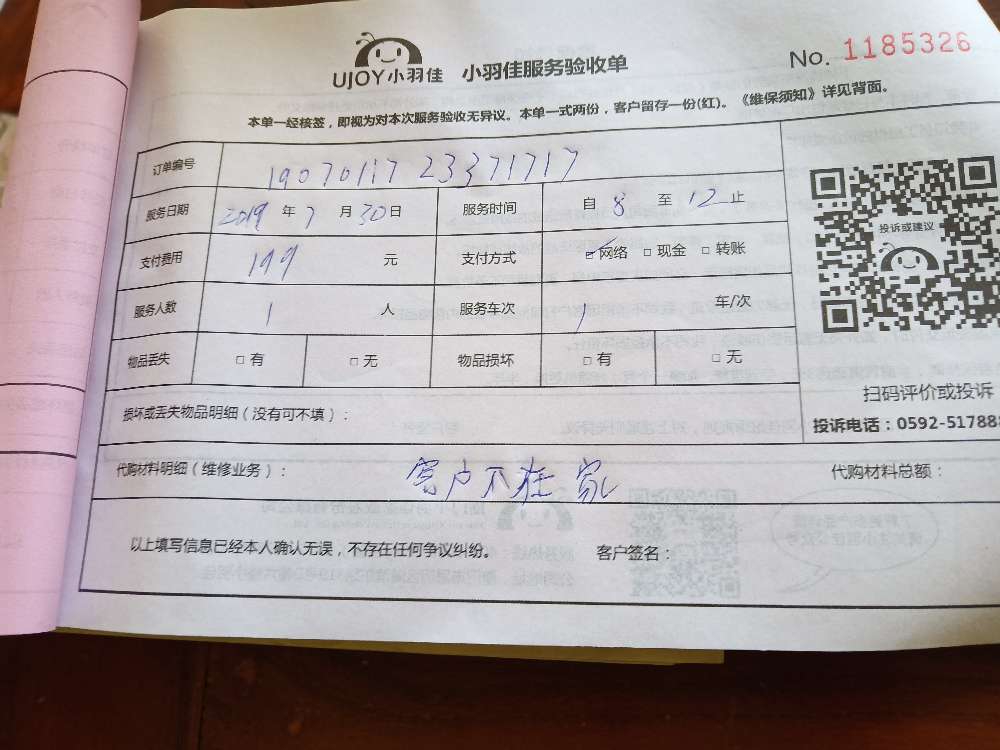 UJOY小羽佳 小羽佳服务验收单 No. 1185326
本单一经核签，即视为对本次服务验收无异议。本单一式两份，客户留存一份(红)。《维保须知》详见背面。
订单编号 1907011723371717
服务日期 2019 年 7 月 30 日 服务时间 自 8 至 12 止
投诉或建议
支付费用 199 元 支付方式 ☑网络 □现金 □转账
服务人数 1 人 服务车次 1 车/次
物品丢失 □有 □无 物品损坏 □有 □无
扫码评价或投诉
损坏或丢失物品明细（没有可不填）：
投诉电话：0592-517888
代购材料明细（维修业务）： 客户不在家 代购材料总额：
以上填写信息已经本人确认无误，不存在任何争议纠纷。 客户签名：